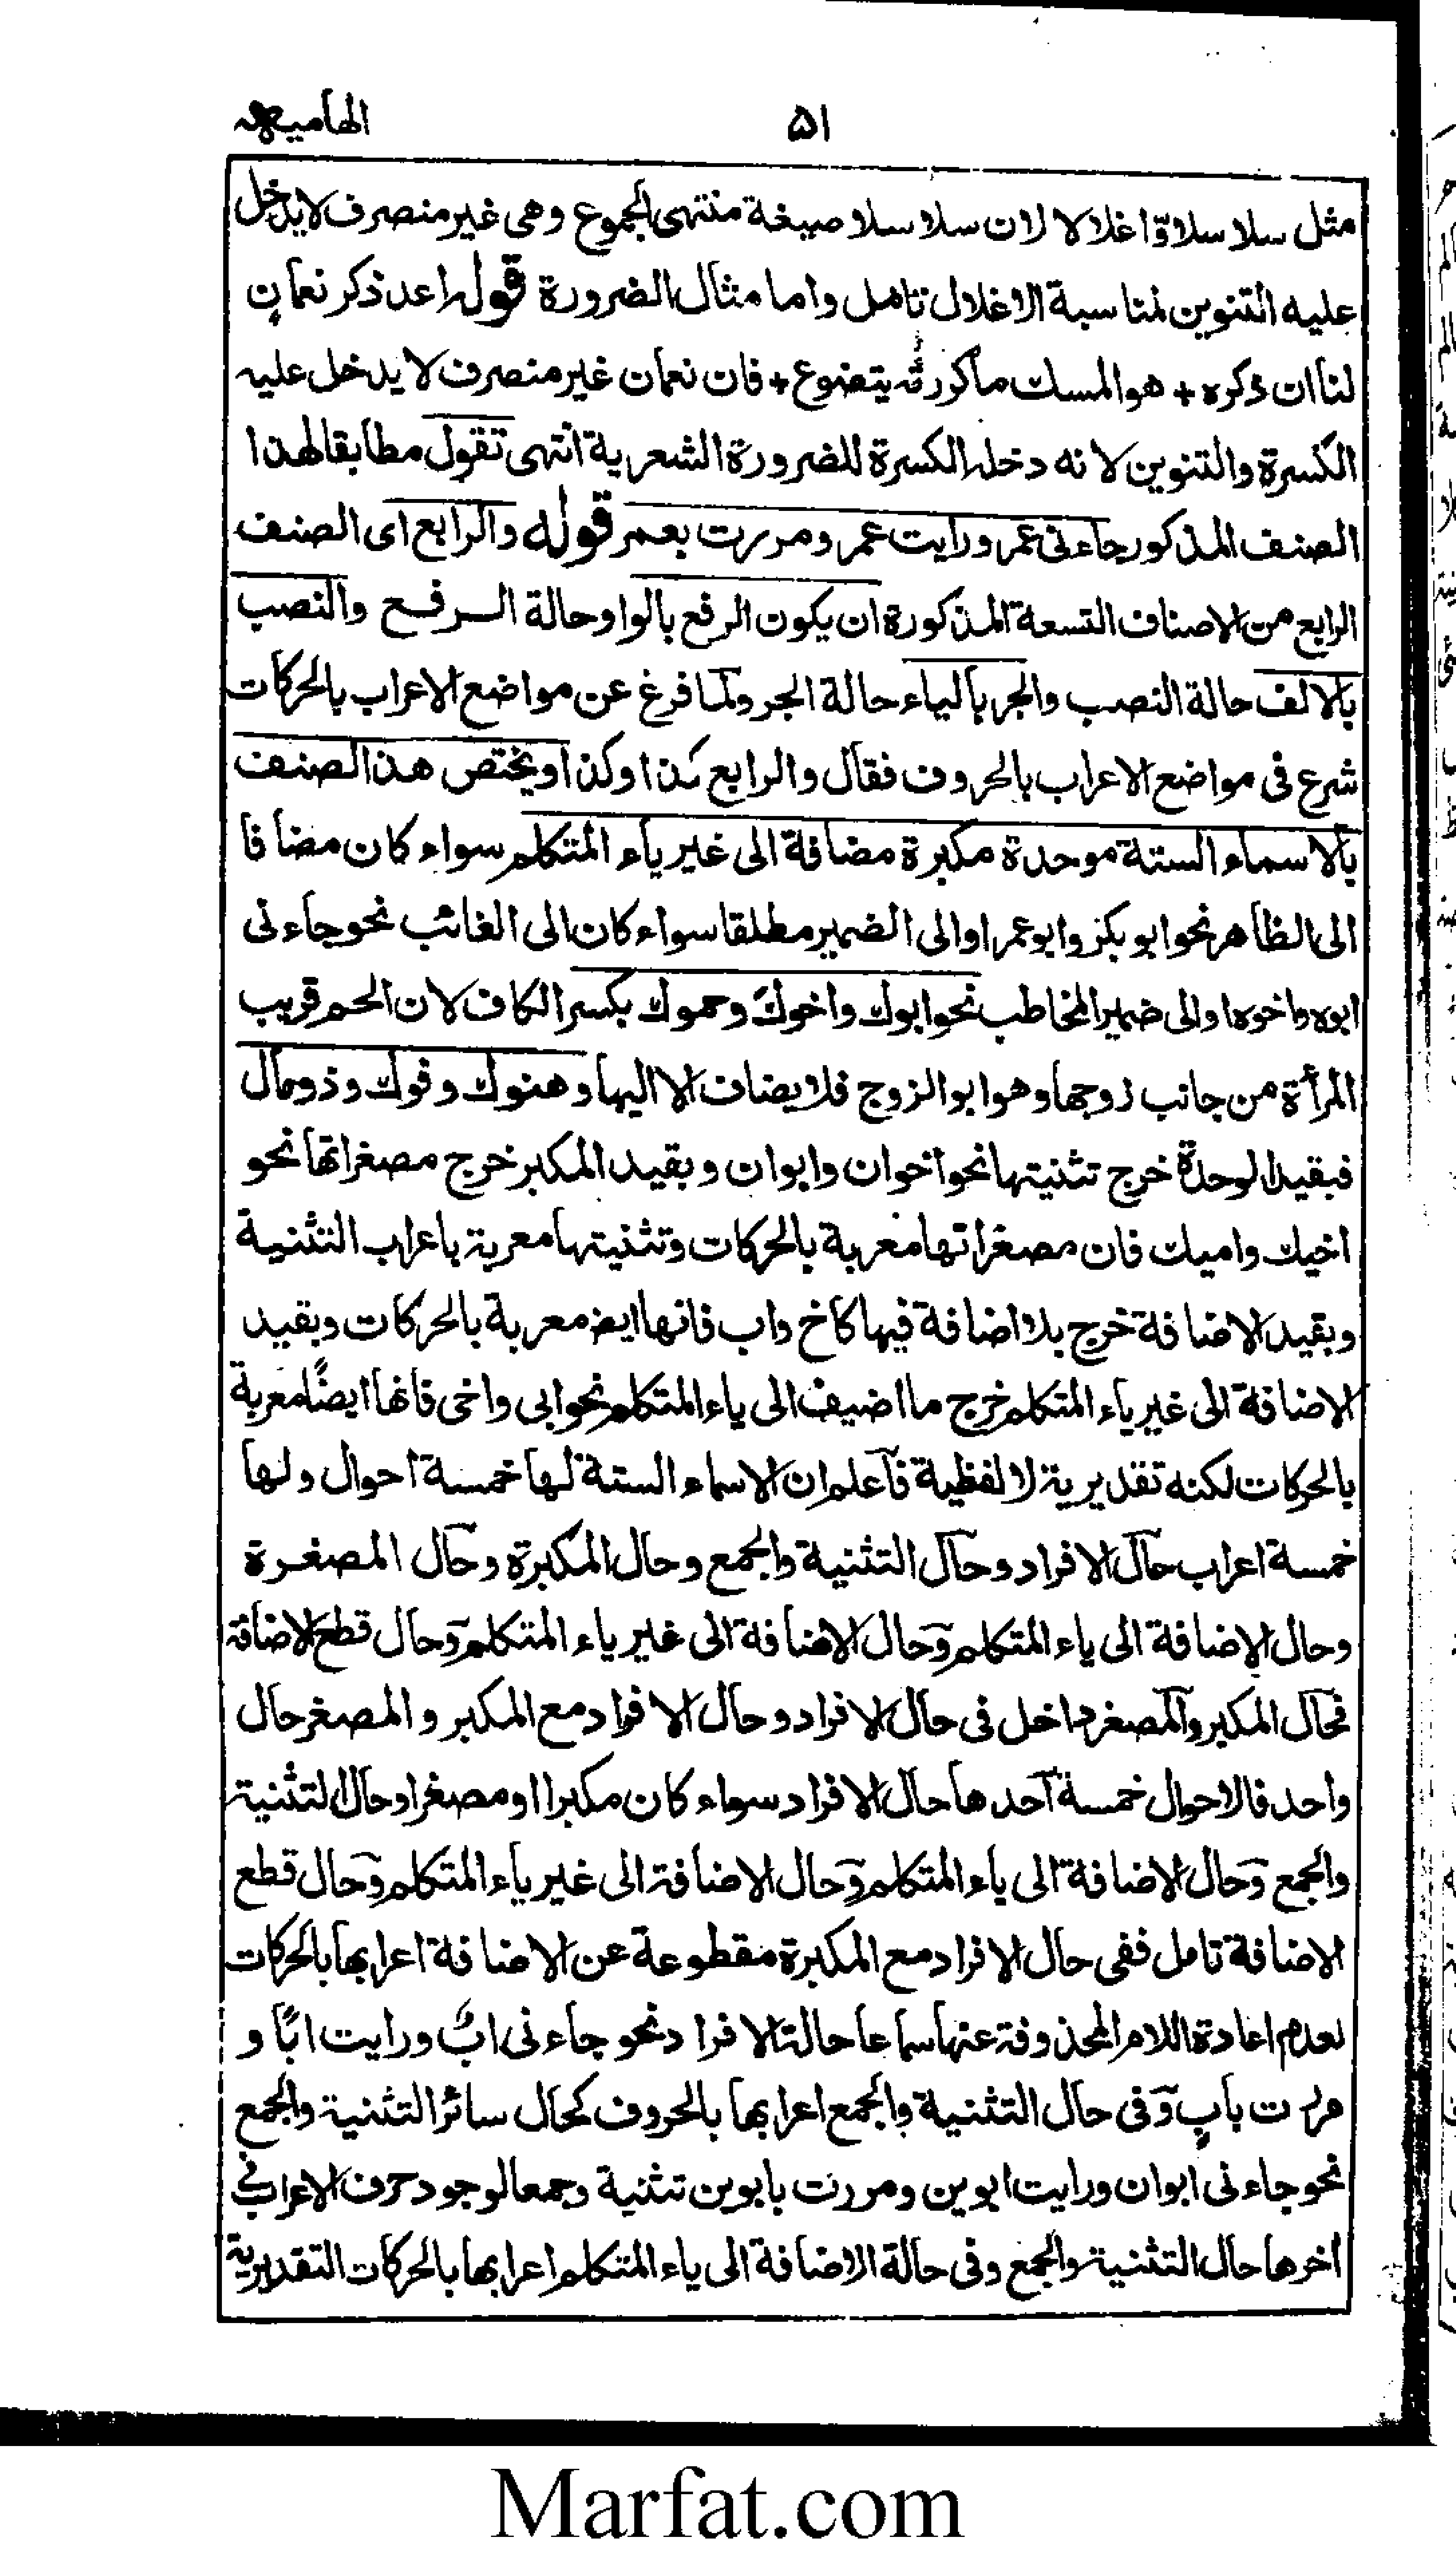 الهاميه
۵۱
مثل سلا سلاوّا غلالا لان سلا سلا صيغة منتهى الجموع وهى غير منصرف لايدخل
عليه التنوين لمنا سبة الاغلال تامل واما مثال الضرورة قوله اعد ذكر نعمانٍ
لنا ان ذكره + هو المسك ماكررته يتضوع + فان نعمان غير منصرف لا يدخل عليه
الكسرة والتنوين لا نه دخله الكسرة للضرورة الشعرية انتهى تقول مطابقا لهذا
الصنف المذكور جاءنى عمر ورايت عمر ومررت بعمر قوله والرابع اى الصنف
الرابع من الاصناف التسعة المذكورة ان يكون الرفع بالواو حالة الرفع والنصب
بالالف حالة النصب والجر بالياء حالة الجر ولما فرغ عن مواضع الاعراب بالحركات
شرع فى مواضع الاعراب بالحروف فقال والرابع كذا وكذا ويختص هذا الصنف
بالاسماء الستة موحدة مكبرة مضافة الى غير ياء المتكلم سواء كان مضافا
الى الظاهر نحو ابو بكر وابو عمرا والى الضمير مطلقا سواء كان الى الغائب نحو جاءنى
ابوه واخوه او الى ضمير المخاطب نحو ابوك واخوك وحموك بكسر الكاف لان الحم قريب
المرأة من جانب زوجها وهو ابو الزوج فلا يضاف الا اليها وهنوك وفوك وذو مال
فبقيد الوحدة خرج تثنيتها نحو اخوان وابوان وبقيد المكبر خرج مصغراتها نحو
اخيك وابيك فان مصغراتها معربة بالحركات وتثنيتها معربة باعراب التثنية
وبقيد الاضافة خرج بلا اضافة فيها كاخ واب فانها ايض معربة بالحركات وبقيد
الاضافة الى غير ياء المتكلم خرج ما اضيف الى ياء المتكلم نحو ابى واخى فانها ايضًا معربة
بالحركات لكنه تقديرية لا لفظية فاعلم ان الاسماء الستة لها خمسة احوال ولها
خمسة اعراب حال الافراد وحال التثنية والجمع وحال المكبرة وحال المصغرة
وحال الاضافة الى ياء المتكلم وحال الاضافة الى غير ياء المتكلم وحال قطع الاضافة
فحال المكبر والمصغر داخل فى حال الافراد وحال الافراد مع المكبر والمصغر حال
واحد فالاحوال خمسة احدها حال الافراد سواء كان مكبرا او مصغرا وحال التثنية
والجمع وحال الاضافة الى ياء المتكلم وحال الاضافة الى غير ياء المتكلم وحال قطع
الاضافة تامل ففى حال الافراد مع المكبرة مقطوعة عن الاضافة اعرابها بالحركات
لعدم اعادة اللام المحذوفة عنها سماعا حالة الافراد نحو جاءنى ابٌ ورايت ابًا و
مررت بابٍ وفى حال التثنية والجمع اعرابها بالحروف كحال سائر التثنية والجمع
نحو جاءنى ابوان ورايت ابوين ومررت بابوين تثنية وجمعا لوجود حرف الاعراب فى
اخرها حال التثنية والجمع وفى حالة الاضافة الى ياء المتكلم اعرابها بالحركات التقديرية
Marfat.com